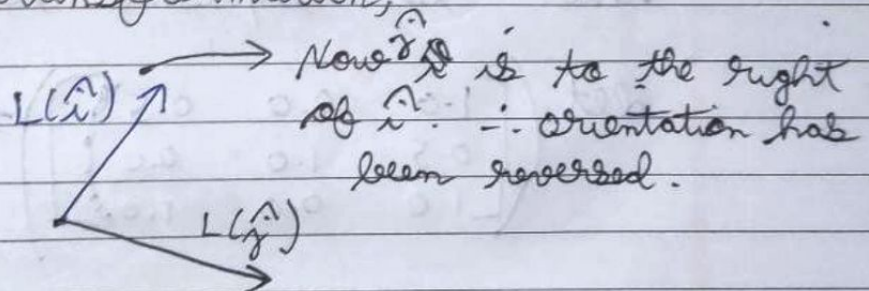 Now ĵ is to the right
L(î)
of î. ∴ orientation has
been reversed.
L(ĵ)